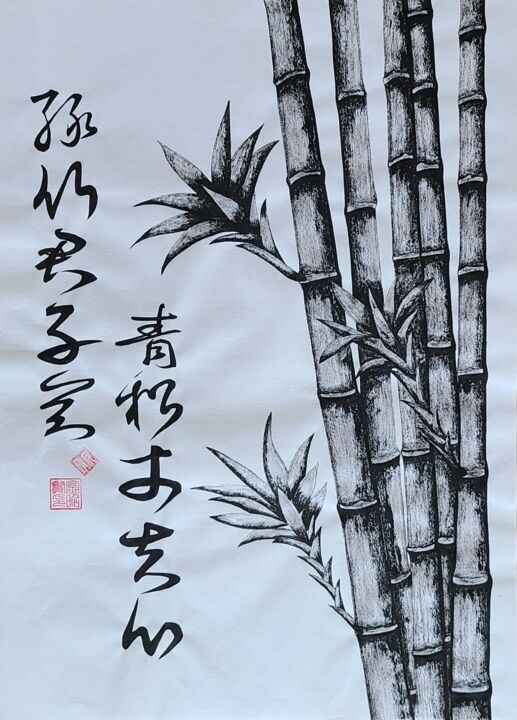 青松丈夫心
綠竹君子